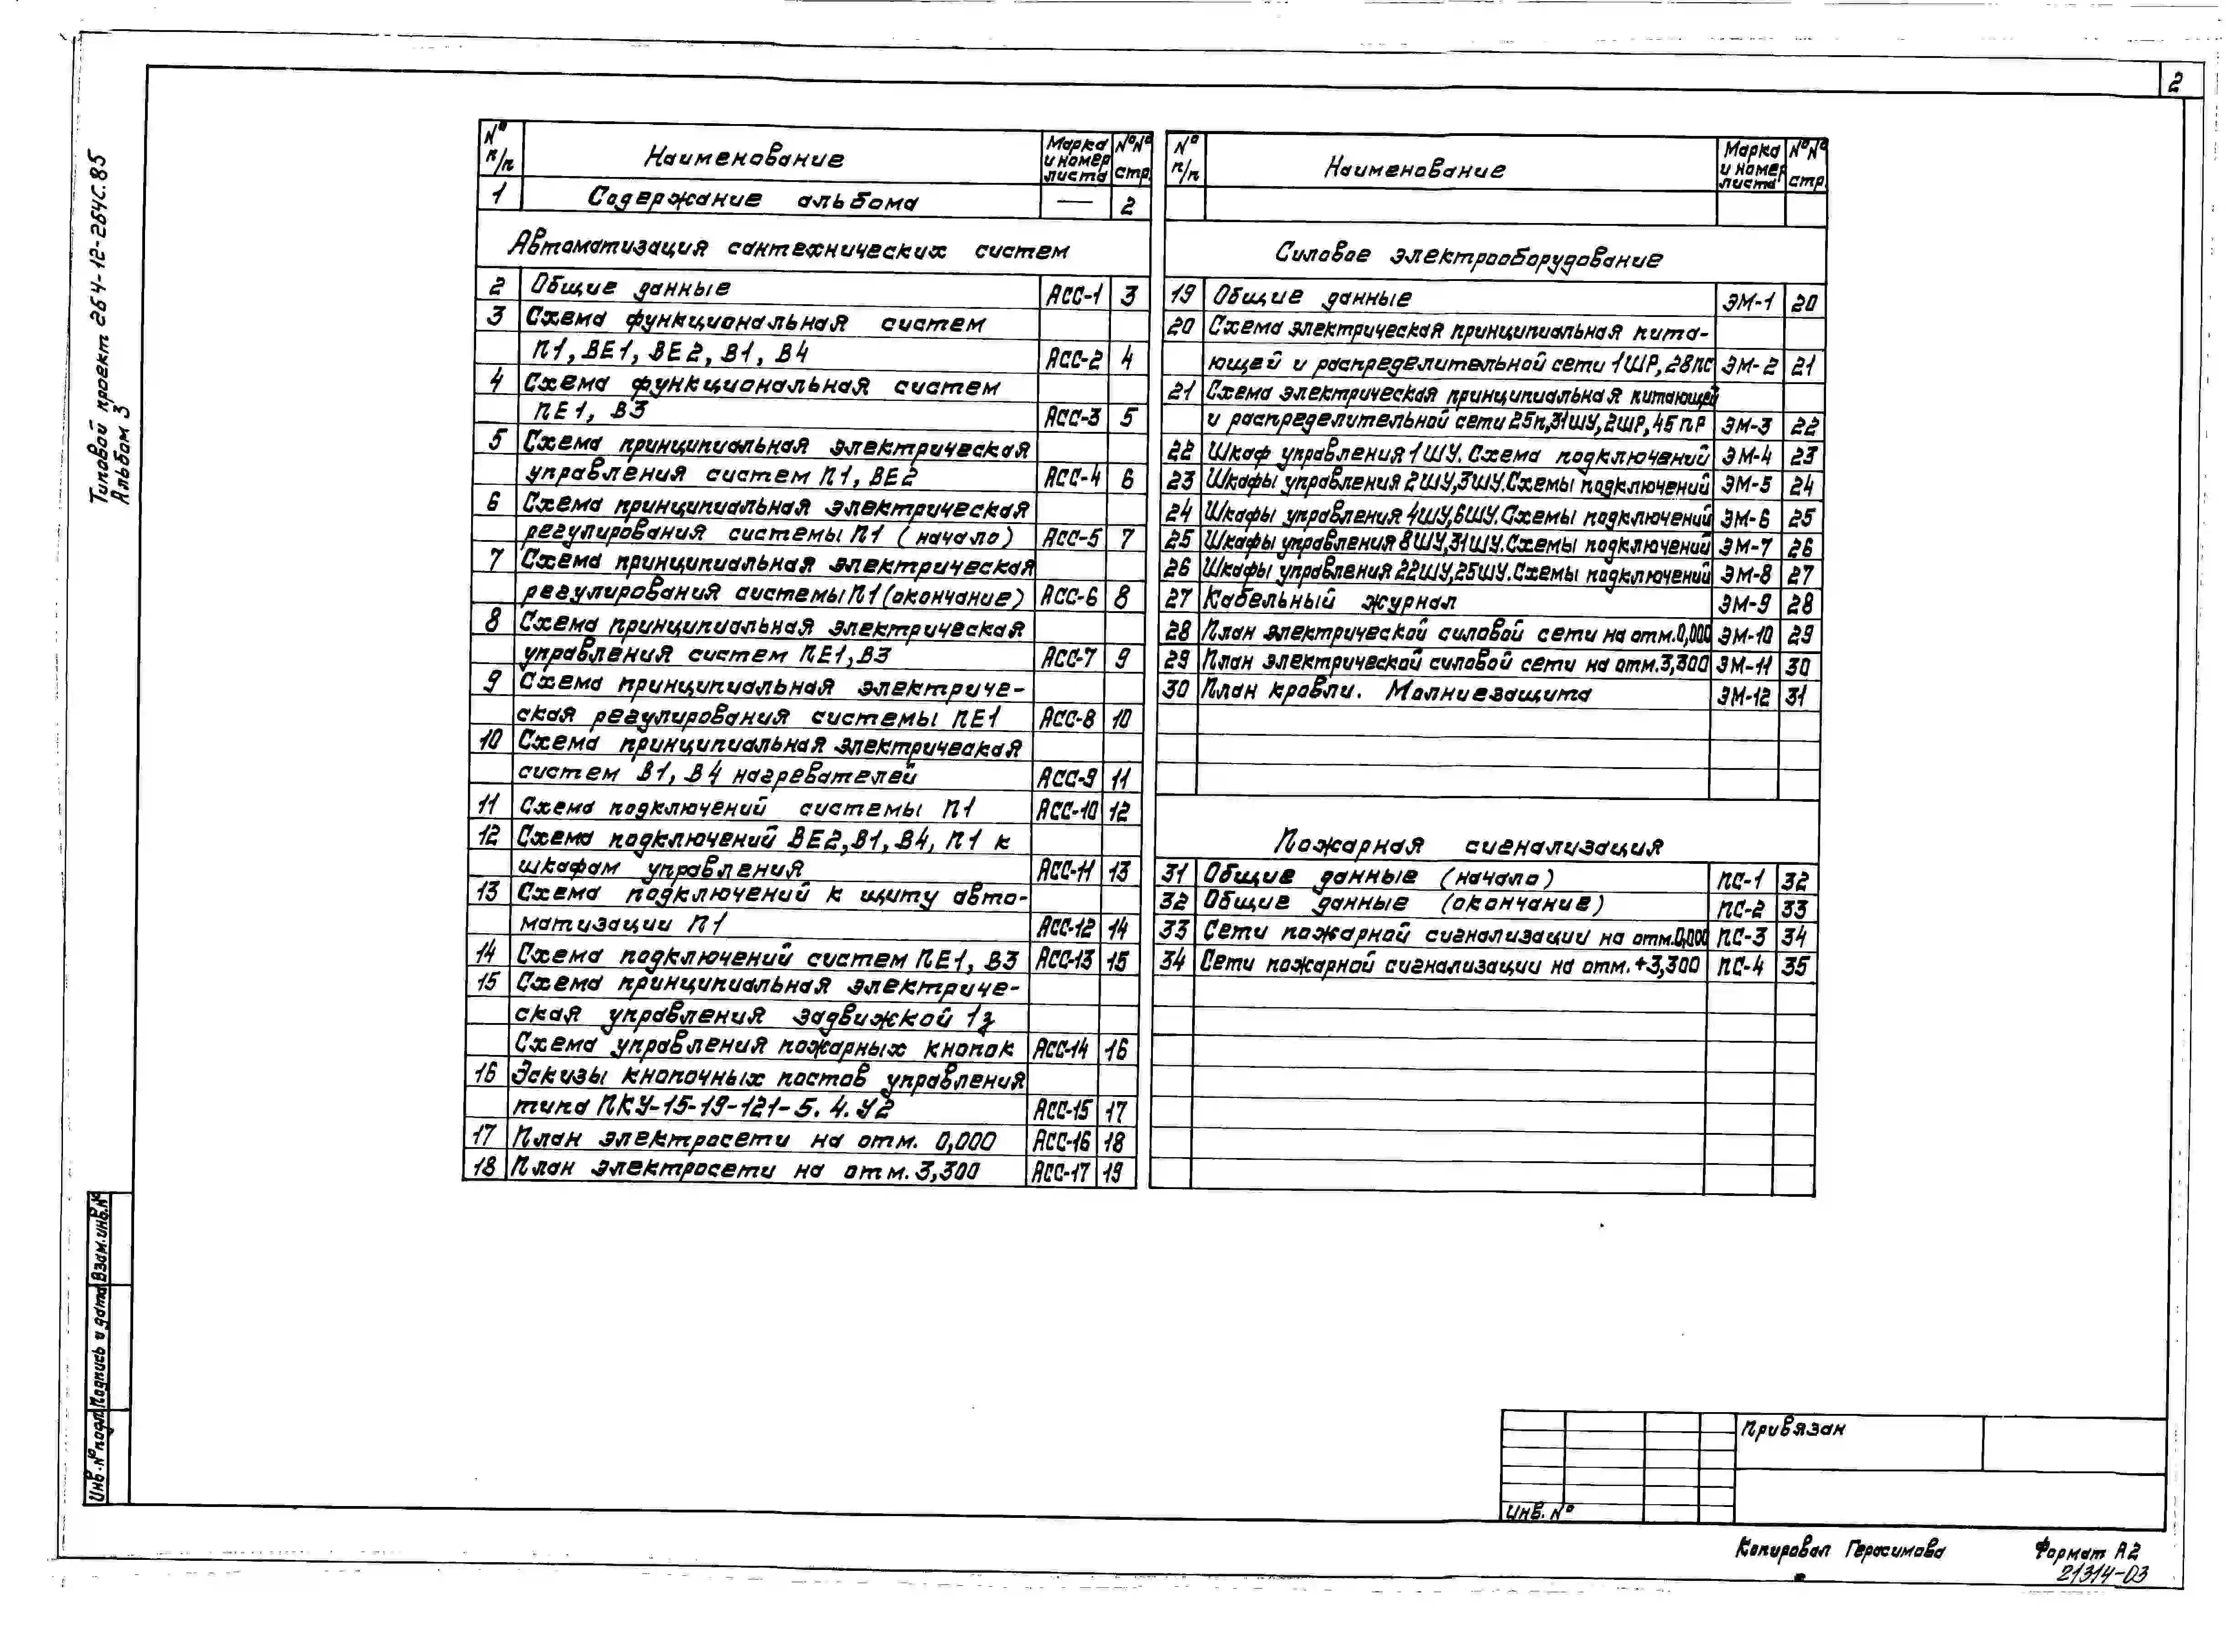 2
Типовой проект 264-12-264с.85
Альбом 3
№ п/п Наименование Марка и номер листа №№ стр.
1 Содержание альбома — 2
Автоматизация сантехнических систем
2 Общие данные АСС-1 3
3 Схема функциональная систем
П1, ВЕ1, ВЕ2, В1, В4 АСС-2 4
4 Схема функциональная систем
ПЕ1, В3 АСС-3 5
5 Схема принципиальная электрическая
управления систем П1, ВЕ2 АСС-4 6
6 Схема принципиальная электрическая
регулирования системы П1 (начало) АСС-5 7
7 Схема принципиальная электрическая
регулирования системы П1 (окончание) АСС-6 8
8 Схема принципиальная электрическая
управления систем ПЕ1, В3 АСС-7 9
9 Схема принципиальная электриче-
ская регулирования системы ПЕ1 АСС-8 10
10 Схема принципиальная электрическая
систем В1, В4 нагревателей АСС-9 11
11 Схема подключений системы П1 АСС-10 12
12 Схема подключений ВЕ2, В1, В4, П1 к
шкафам управления АСС-11 13
13 Схема подключений к щиту авто-
матизации П1 АСС-12 14
14 Схема подключений систем ПЕ1, В3 АСС-13 15
15 Схема принципиальная электриче-
ская управления задвижкой 1з
Схема управления пожарных кнопок АСС-14 16
16 Эскизы кнопочных постов управления
типа ПКУ-15-19-121-5.4.У2 АСС-15 17
17 План электросети на отм. 0,000 АСС-16 18
18 План электросети на отм. 3,300 АСС-17 19
№ п/п Наименование Марка и номер листа №№ стр.
Силовое электрооборудование
19 Общие данные ЭМ-1 20
20 Схема электрическая принципиальная пита-
ющей и распределительной сети 1ШР, 28ПС ЭМ-2 21
21 Схема электрическая принципиальная питающей
и распределительной сети 25п, 31ШУ, 2ШР, 45ПР ЭМ-3 22
22 Шкаф управления 1ШУ. Схема подключений ЭМ-4 23
23 Шкафы управления 2ШУ, 3ШУ. Схемы подключений ЭМ-5 24
24 Шкафы управления 4ШУ, 6ШУ. Схемы подключений ЭМ-6 25
25 Шкафы управления 8ШУ, 31ШУ. Схемы подключений ЭМ-7 26
26 Шкафы управления 22ШУ, 25ШУ. Схемы подключений ЭМ-8 27
27 Кабельный журнал ЭМ-9 28
28 План электрической силовой сети на отм. 0,000 ЭМ-10 29
29 План электрической силовой сети на отм. 3,300 ЭМ-11 30
30 План кровли. Молниезащита ЭМ-12 31
Пожарная сигнализация
31 Общие данные (начало) ПС-1 32
32 Общие данные (окончание) ПС-2 33
33 Сети пожарной сигнализации на отм. 0,000 ПС-3 34
34 Сети пожарной сигнализации на отм. +3,300 ПС-4 35
Взам. инв. №
Подпись и дата
Инв. № подл.
Привязан
Инв. №
Копировал Герасимова Формат А2
21314-03